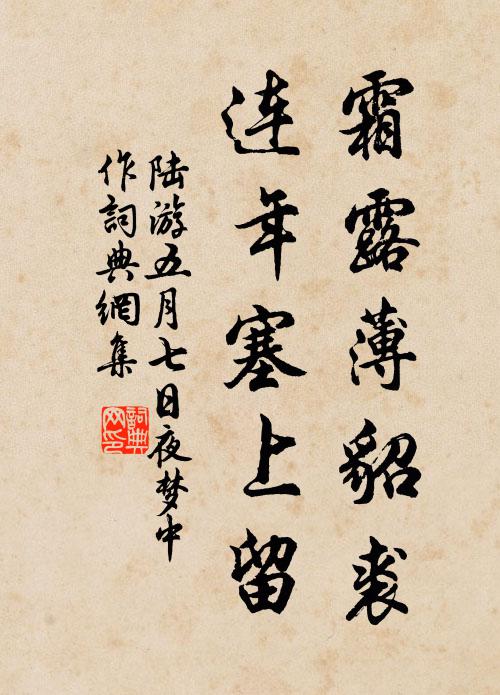 霜露薄貂裘
连年塞上留
陆游五月七日夜梦中
作詞典網集
詞典网印